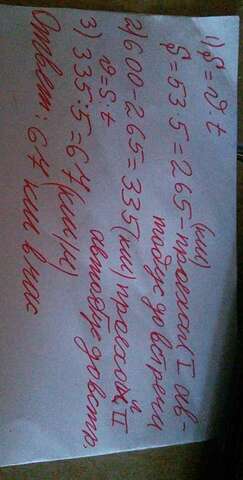 1) S = v · t
S = 53 · 5 = 265 (км) - проехал I ав-
тобус до встречи
2) 600 - 265 = 335 (км) проехал II
автобус до встр.
v = S : t
3) 335 : 5 = 67 (км/ч)
Ответ: 67 км в час